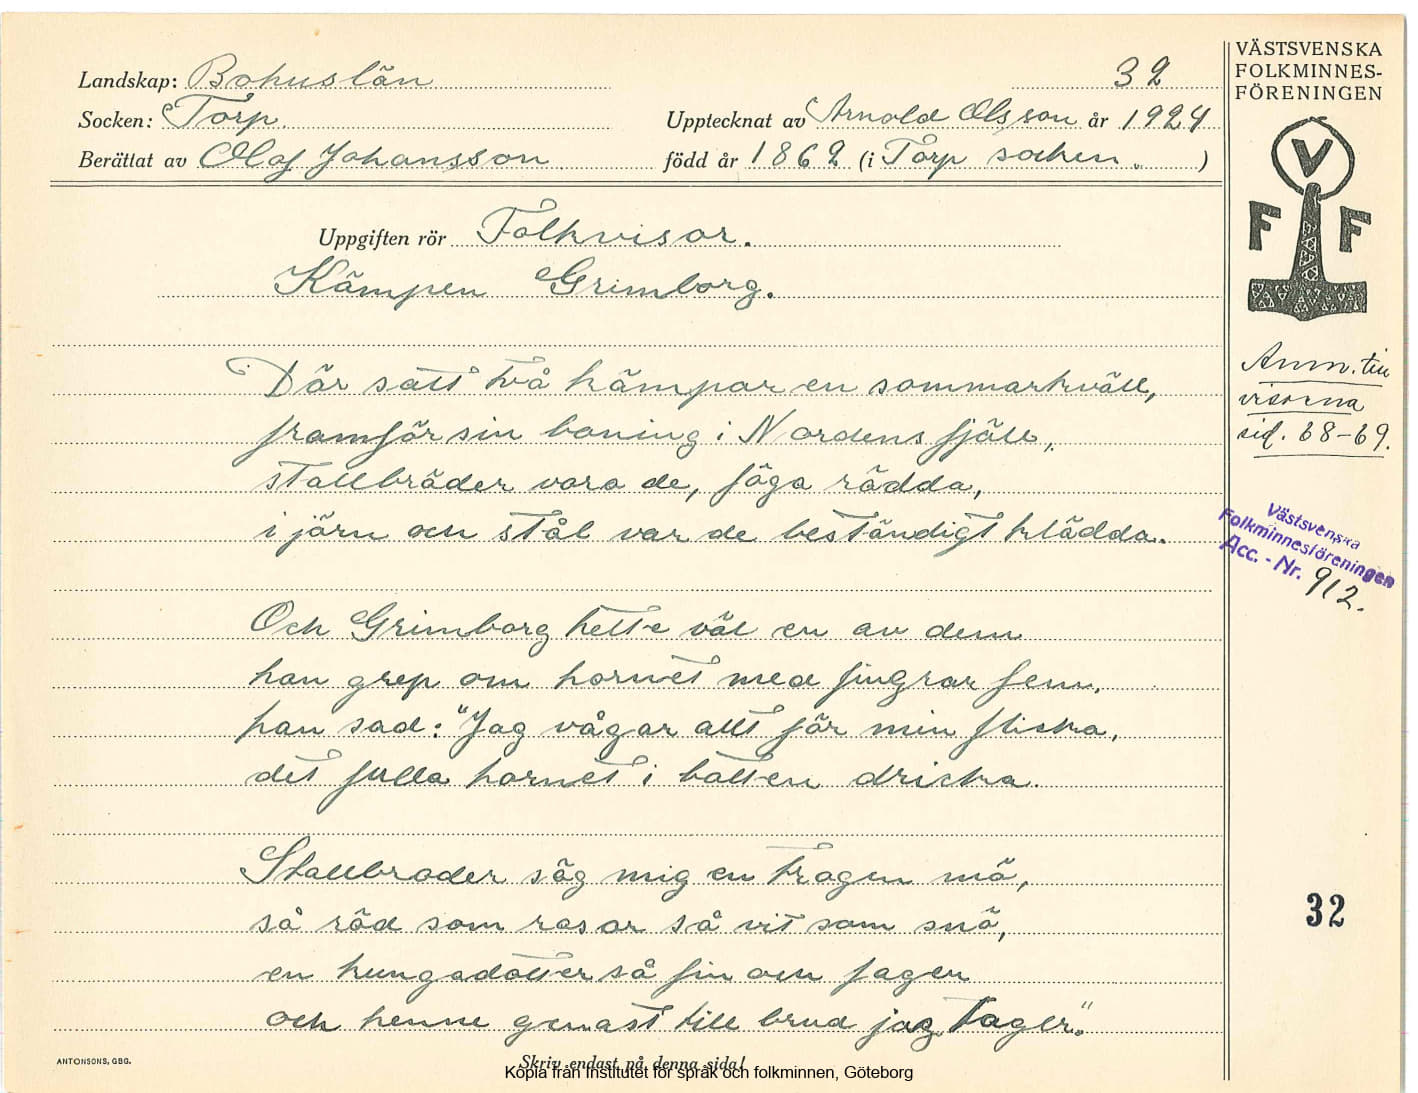 Landskap: Bohuslän
32
Socken: Torp.
Upptecknat av Arnold Olsson år 1924
Berättat av Olof Johansson
född år 1862 (i Torp socken.)
Uppgiften rör Folkvisor.
Kämpen Grimborg.
Där satt två kämpar en sommarkväll,
framför sin boning i Nordens fjäll,
stallbröder vora de, föga rädda,
i järn och stål var de beständigt klädda.
Och Grimborg hette väl en av dem
han grep om hornet med fingrar fem,
han sad: "Jag vågar allt för min flicka,
det fulla hornet i botten dricka.
Stallbroder såg mig en trogen mö,
så röd som rosor så vit som snö,
en kungadotter så fin och fager
och henne genast till brud jag tager."
ANTONSONS, GBG.
Skriv endast på denna sida!
Kopia från Institutet för språk och folkminnen, Göteborg
VÄSTSVENSKA
FOLKMINNES-
FÖRENINGEN
V
F F
Anm. till
visorna
sid. 68-69.
Västsvenska
Folkminnesföreningen
Acc. - Nr. 912.
32